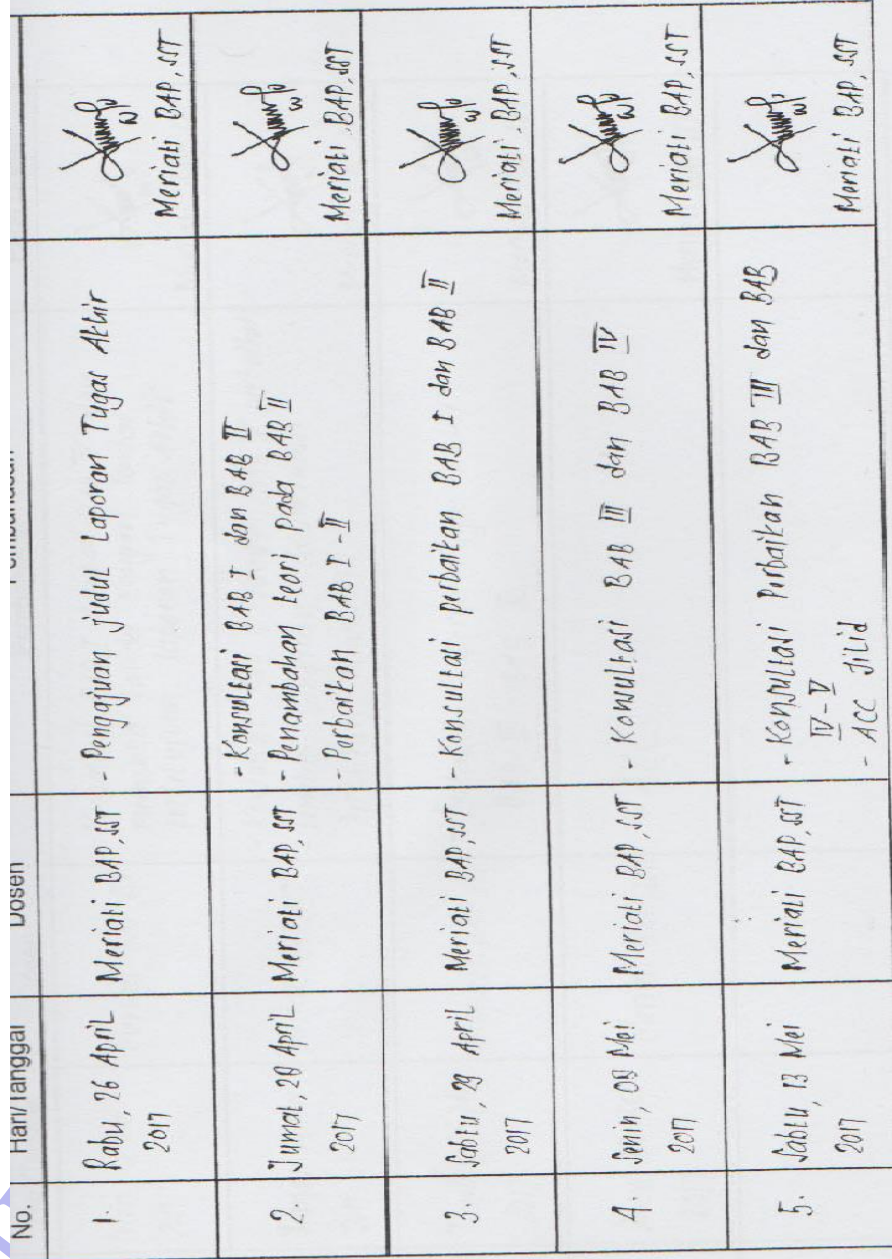 No. Hari/Tanggal Dosen
1. Rabu, 26 April Meriati BAP, SST - Pengajuan judul Laporan Tugas Akhir
2017 Meriati BAP, SST
- Konsultasi BAB I dan BAB II
2. Jumat, 28 April Meriati BAP, SST - Penambahan teori pada BAB II
2017 - Perbaikan BAB I - II Meriati BAP, SST
3. Sabtu, 29 April Meriati BAP, SST - Konsultasi perbaikan BAB I dan BAB II
2017 Meriati BAP, SST
4. Senin, 08 Mei Meriati BAP, SST - Konsultasi BAB III dan BAB IV
2017 Meriati BAP, SST
5. Sabtu, 13 Mei Meriati BAP, SST - Konsultasi Perbaikan BAB III dan BAB
IV - V
2017 - ACC Jilid Meriati BAP, SST